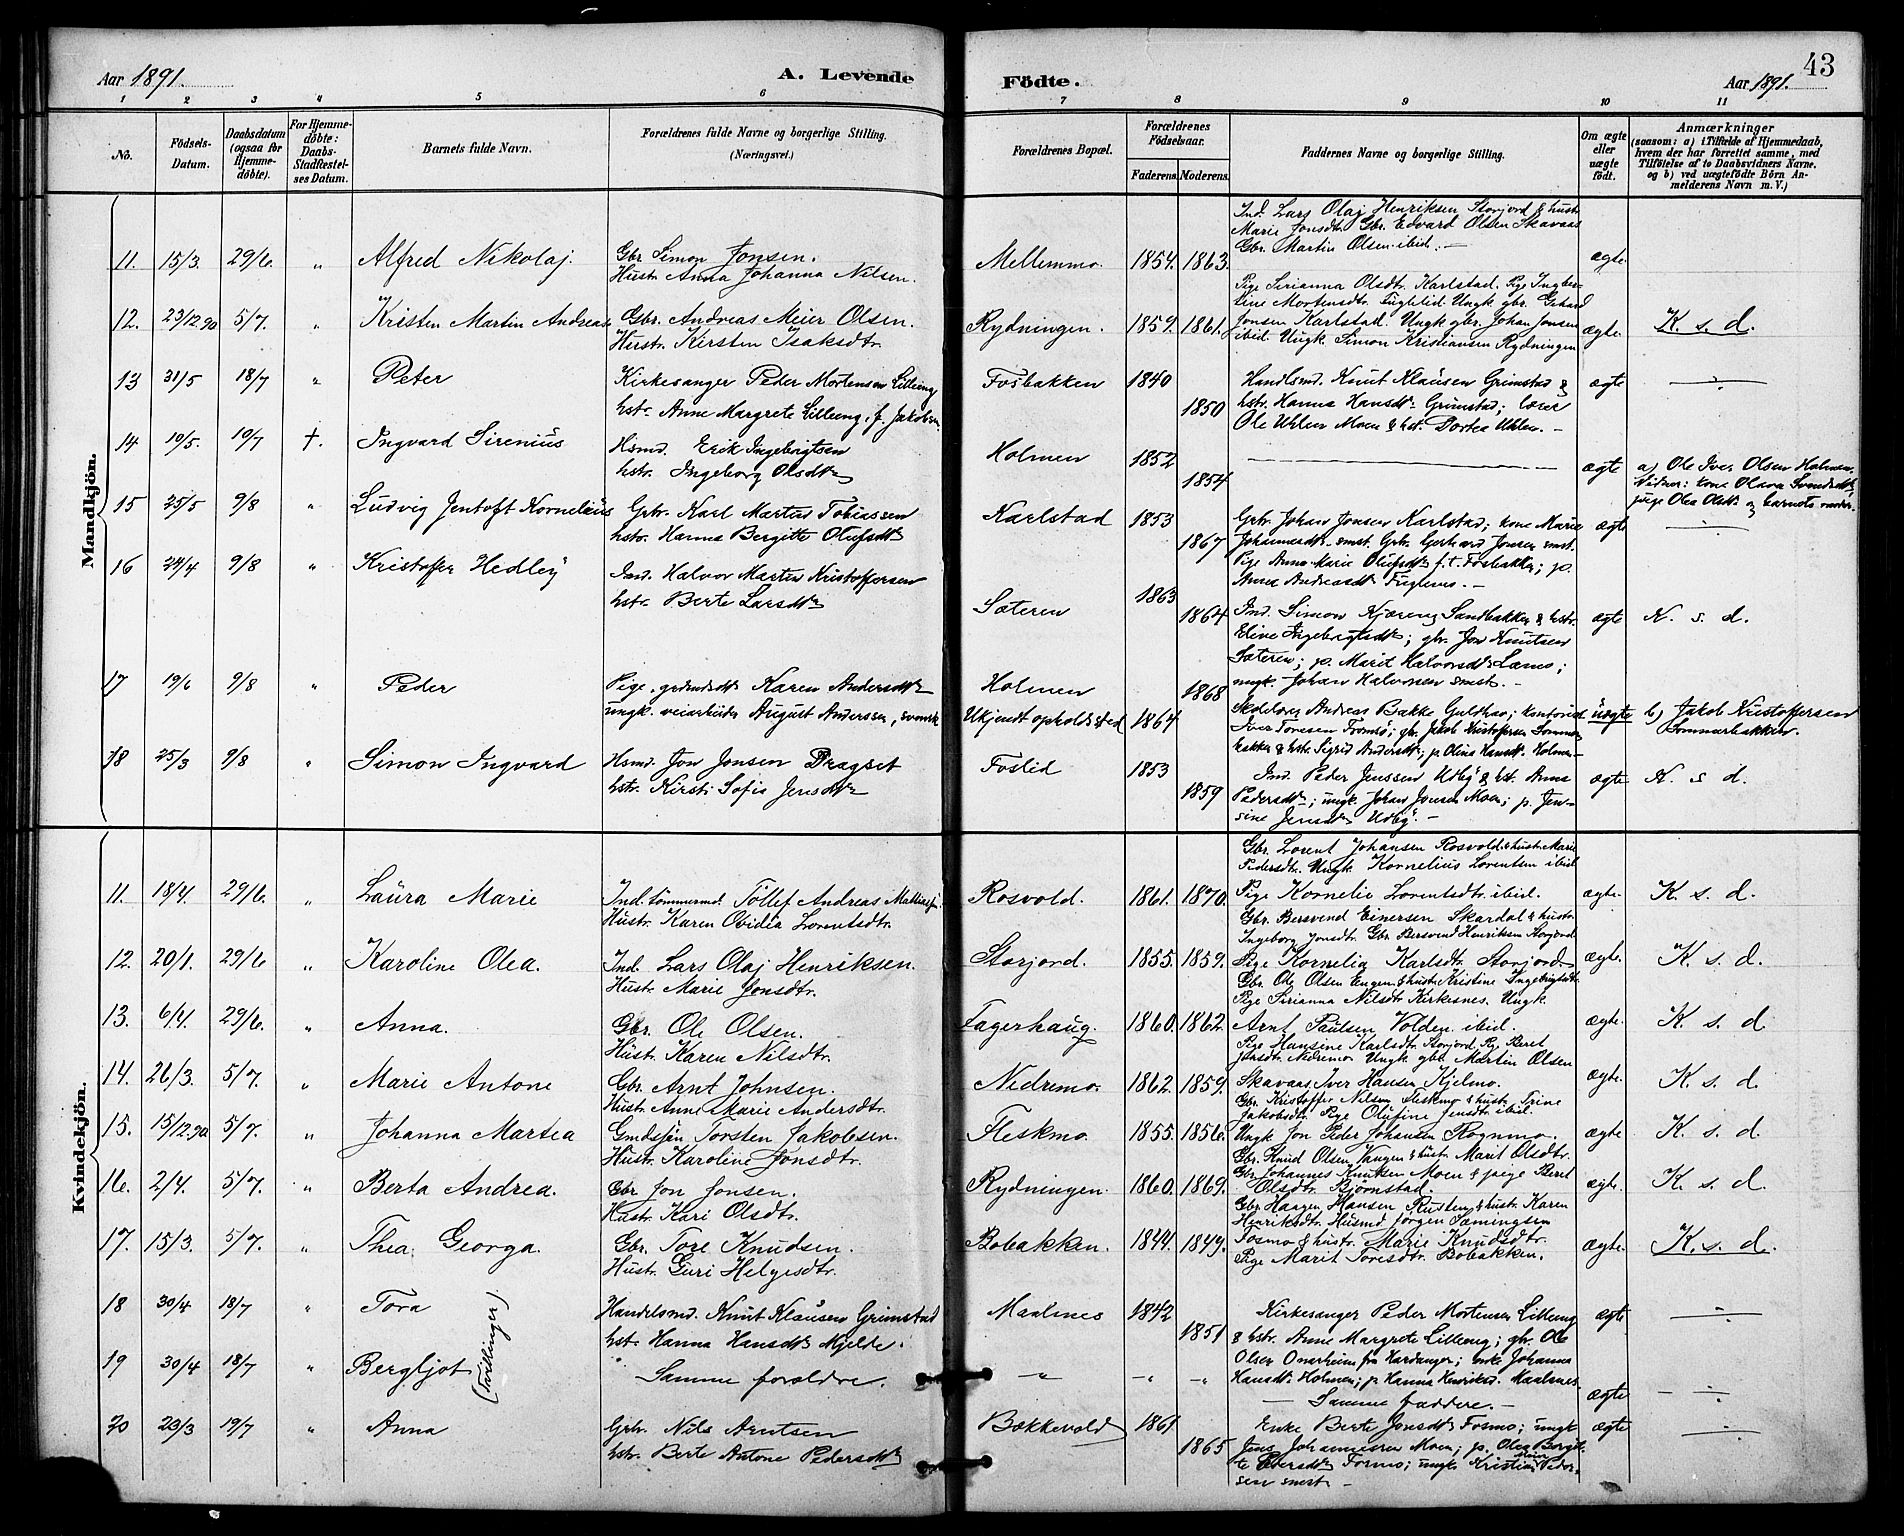 Aar 1891. A. Levende Födte. Aar 1891. 43
1 2 3 4 5 6 7 8 9 10 11
No.
Födsels-Datum.
Daabsdatum (ogsaa for Hjemme-döbte).
For Hjemme-döbte: Daabs-Stadfæstel-ses Datum.
Barnets fulde Navn.
Forældrenes fulde Navne og borgerlige Stilling. (Næringsvei.)
Forældrenes Bopæl.
Forældrenes Födselsaar.
Faderens. Moderens.
Faddernes Navne og borgerlige Stilling.
Om ægte eller uægte födt.
Anmærkninger
(saasom: a) i Tilfælde af Hjemmedaab,
hvem der har forrettet samme, med
Tilföielse af to Daabsvidners Navne.
og b) ved uægtefödte Börn An-
melderens Navn m. V.)
Mandkjön.
11. 15/3. 29/6. " Alfred Nikolaj. Gbr. Simon Jonsen. Hustr. Anna Johanna Nilsen. Mellemmo. 1854. 1863.
Ind. Lars Olaj Henriksen Storjord & hustr.
Marie Jonsdtr. Gbr. Edvard Olsen Skavaas
Gbr. Martin Olsen ibid. —
ægte.
12. 23/12.90 5/7. " Kristen Martin Andreas Gbr. Andreas Meier Olsen. Hustr. Kirsten Isaksdtr. Rydningen. 1859. 1861.
Pige Sirianna Olsdtr. Karlstad. Pige Ingber-
tine Mortensdtr. Fuglelid. Ungk. gbr. Gerhard
Jonsen Karlstad. Ungk. gbr. Johan Jonsen
ibid. Ungk. Simon Kristiansen Rydningen
ægte. K. s. d.
13 31/5 18/7 " Peter Kirkesanger Peder Mortensen Lilleeng hstr. Anne Margrete Lilleeng, f. Jakobsen Fosbakken 1840 1850
Handlsmd. Knut Klausen Grimstad &
hstr. Hanna Hansdtr. Grimstad; lærer
Ole Uhlen Moen & hst. Dortea Uhlen. —
ægte —
14 19/5. 19/7 †. Ingvard Sirenius Hsmd. Erik Ingebrigtsen hstr. Ingeborg Olsdtr. Holmen 1852 1854 ægte
a) Ole Iver Olsen Holmen.
Vidner: kone Olava Svendsdtr,
pige Olea Olsdtr. og barnets moder.
15 25/5 9/8 " Ludvig Jentoft Kornelius Gbr. Karl Martin Tobiassen hstr. Hanna Bergitte Olufsdtr. Karlstad 1853 1867
Gbr. Johan Jonsen Karlstad; kone Marie
Johannesdtr. smst. Gbr. Gerhard Jonsen smst.
Pige Anna Marie Olufsdtr. f. t. Fosbakken; p.
Anna Andreasdtr. Fuglenes. —
ægte —
16 24/4 9/8 " Kristoffer Hedley Ind. Halvor Martin Kristoffersen hstr. Berte Larsdtr. Sæteren 1863 1864
Ind. Simon Kjæreng Sandbakken & hstr.
Eline Ingebrigtsdtr; gbr. Jon Knutsen
Sæteren; p. Marit Halvorsdtr. Læmo;
ungk. Johan Halvorsen smst. —
ægte K. s. d.
17 19/6 9/8 " Peder Pige, Karen Andersdtr. ungk. veiarbeider August Anderssen, svensk Holmen Ukjendt opholdssted 1864 1868
Andreas Bakke Guldhav; kontorist
Iver Toresen Tromsø; gbr. Jakob Kristoffersen Sommer-
bakken & hstr. Sigrid Andersdtr; p. Olina Hansdtr. Holmen
uægte b) Jakob Kristoffersen Sommerbakken.
18 25/3 9/8 " Simon Ingvard Hsmd. Jon Jonsen Dragset hstr. Kirsti Sofie Jensdtr. Foslid 1853 1859
Ind. Peder Jenssen Udby & hst. Anna
Pedersdtr; ungk. Johan Jonsen Moen; p. Jen-
sine Jensdtr. Udby. —
ægte K. s. d.
Kvindekjön.
11. 18/4. 29/6. " Laura Marie Ind. tömmermd. Tollef Andreas Hustr. Karen Ovidia Lorentsdtr. Rosvold. 1861. 1870.
Gbr. Lorent Johansen Rosvold & hustr. Marie
Pedersdtr. Ungk. Kornelius Lorentsen ibid
Pige Kornelie Lorentsdtr. ibid.
ægte. K. s. d.
12. 20/1. 29/6 " Karoline Olea. Ind. Lars Olaj Henriksen. Hustr. Marie Jonsdtr. Storjord. 1855. 1859.
Gbr. Bersvend Einersen Skardal & hustr.
Ingeborg Jonsdtr. Gbr. Bersvend Henriksen Storjord
Pige Kornelia Karlsdtr. Storjord
ægte. K. s. d.
13. 6/4. 29/6. " Anna. Gbr. Ole Olsen. Hustr. Karen Nilsdtr. Fagerhaug. 1860. 1862.
Gbr. Ole Olsen Engen & hustr. Kristine Ingebrigtsdtr.
Pige Sirianna Nilsdtr. Kirkesnes. Ungk.
Arnt Paulsen Volden ibid.
ægte. K. s. d
14. 26/3. 5/7. " Marie Antone Gbr. Arnt Johnsen. Hustr. Anne Marie Andersdtr. Nedremo. 1862. 1859.
Pige Hansine Karlsdtr. Storjord. Pg. Beret
Jonsdtr. Nedremo. Ungk. gbr. Martin Olsen
Skavaas, Iver Hansen Kjelmo.
ægte. K. s. d
15. 15/12.90. 5/7. " Johanna Martea Gmdsjön. Torsten Jakobsen. Hustr. Karoline Jonsdtr. Fleskmo. 1855. 1856.
Gbr. Kristoffer Nilsen Fleskmo & hustr. Trine
Jakobsdtr. Pige Olufine Jensdtr. ibid.
Ungk. Jon Peder Johansen Rognmo.
ægte K. s. d.
16. 2/4. 5/7. " Berta Andrea. Gbr. Jon Jonsen. Hustr. Kari Olsdtr. Rydningen. 1860. 1869.
Gbr. Knud Olsen Vangen & hustr. Marit Olsdtr.
Gbr. Johannes Knutsen Moen & pige Beret
Olsdtr. Bjørnstad.
ægte. K. s. d
17. 15/3. 5/7. " Thea Georga. Gbr. Tore Knudsen. Hustr. Guri Helgesdtr. Bobakken. 1844. 1849.
Gbr. Haagen Hansen Rusteng & hustr. Karen
Henriksdtr. Husmd. Jörgen Sæmingsen
Fosmo & hustr. Marie Knudsdtr.
Pige Marit Toresdtr. Bobakken.
ægte. K. s. d.
18 30/4 18/7 " Tora Handelsmd. Knut Klausen Grimstad hst. Hanna Hansdtr. Mjelde. Maalnes 1842 1851
Kirkesanger Peder Mortensen Lilleeng
& hstr. Anne Margrete Lilleeng; gbr. Ole
Olsen Onarheim fra Hardanger; enke Johanna
Hansdtr. Holmen; p. Hanna Henriksd. Maalsnes.
ægte —
(Tvillinger)
19 30/4 18/7 " Bergljot Samme forældre. " " " — Samme faddere. — ægte —
20 23/3 19/7 " Anna Gbr. Nils Arntsen hstr. Berte Antone Pedersdtr. Bækkevold 1861 1865
Enke Berte Jonsdtr. Fosmo; ungk.
Jens Johannessen Moen; p. Olea Bergit-
te Pedersdtr. Fosmo; ungk. Kristian Peder-
sen smst. —
ægte —